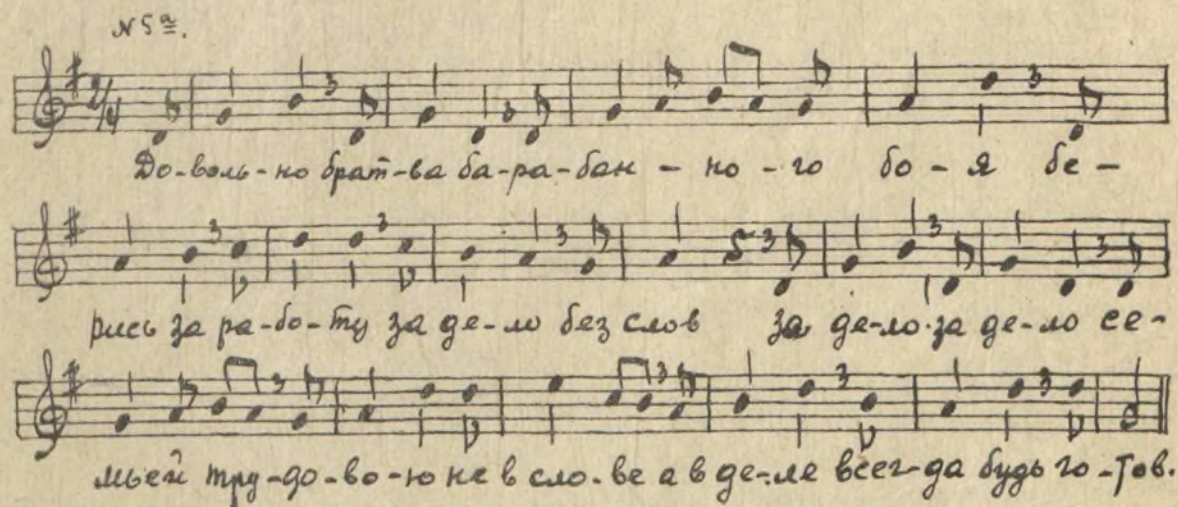 № 5а.
До-воль-но брат-ва ба-ра-бан - но - го бо - я бе-
рись за ра-бо-ту за де-ло без слов за де-ло за де-ло се-
мьей тру-до-во-ю не в сло-ве а в де-ле всег-да будь го-тов.